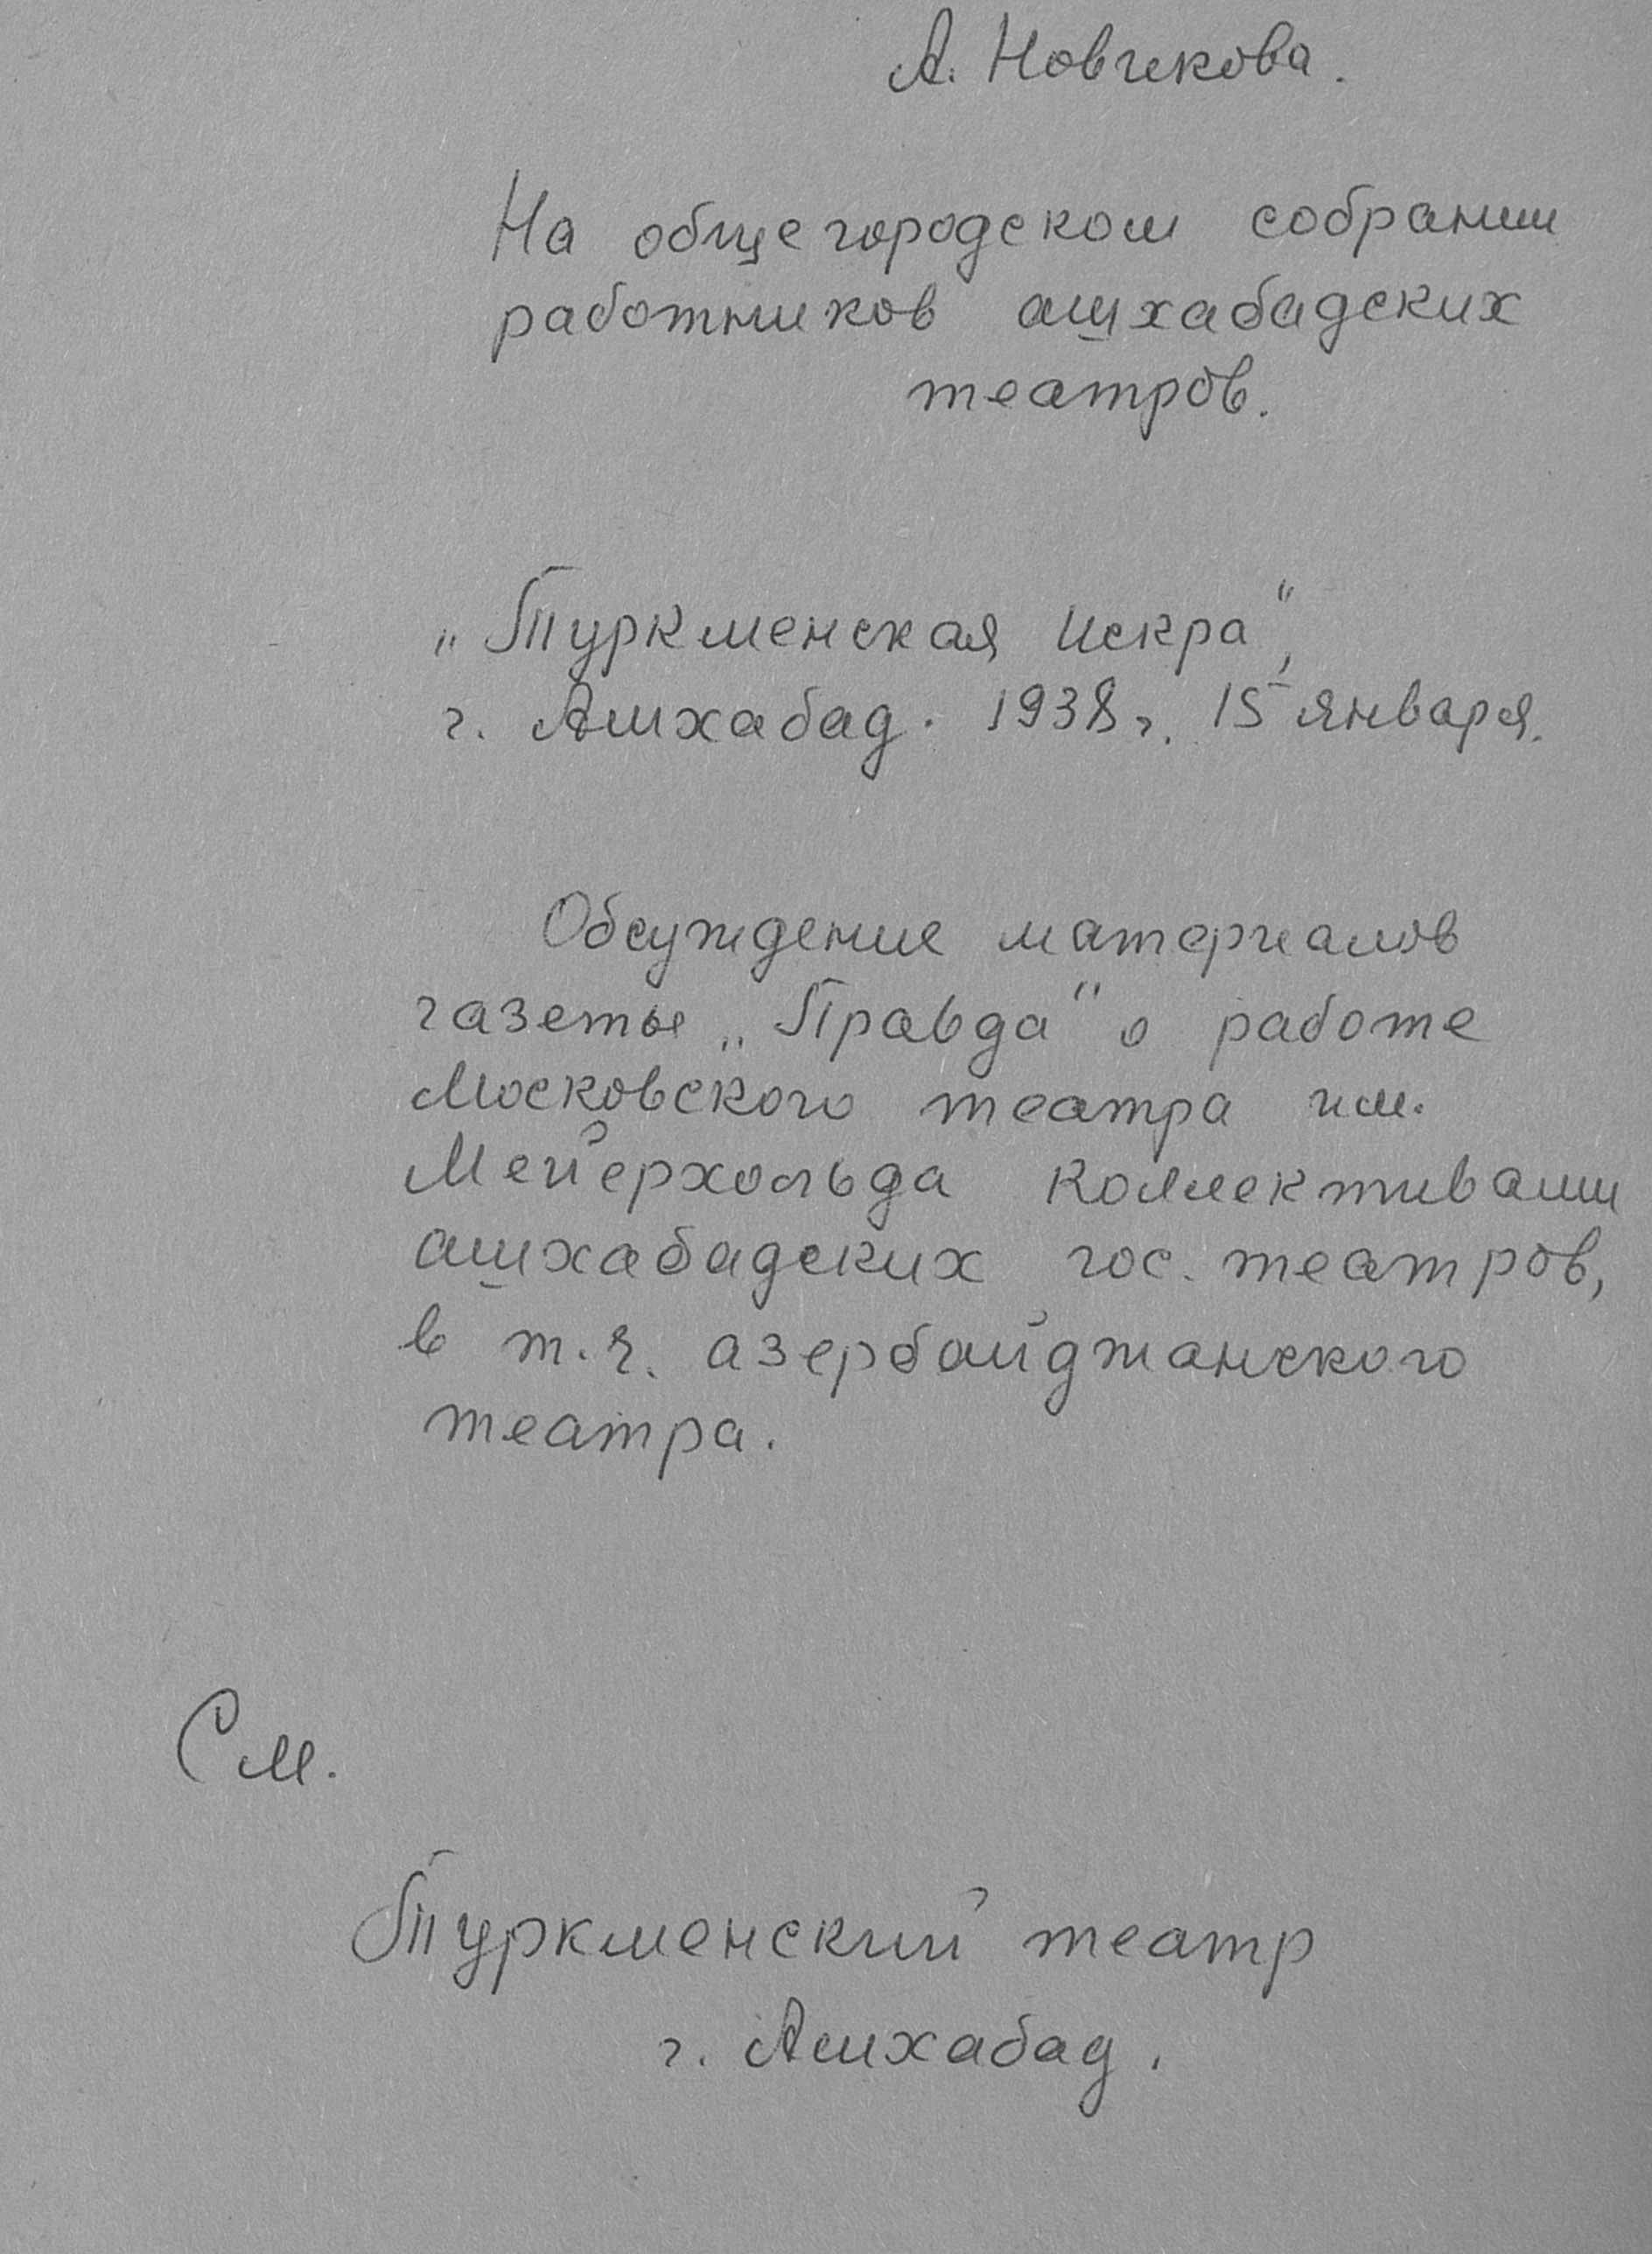 А. Новчекова.
На общегородском собрании
работников ашхабадских
театров.
„Туркменская искра“,
г. Ашхабад. 1938 г. 15 января.
Обсуждение материалов
газеты „Правда“ о работе
Московского театра им.
Мейерхольда коллективами
ашхабадских гос. театров,
в т.ч. азербайджанского
театра.
См.
Туркменский театр
г. Ашхабад.